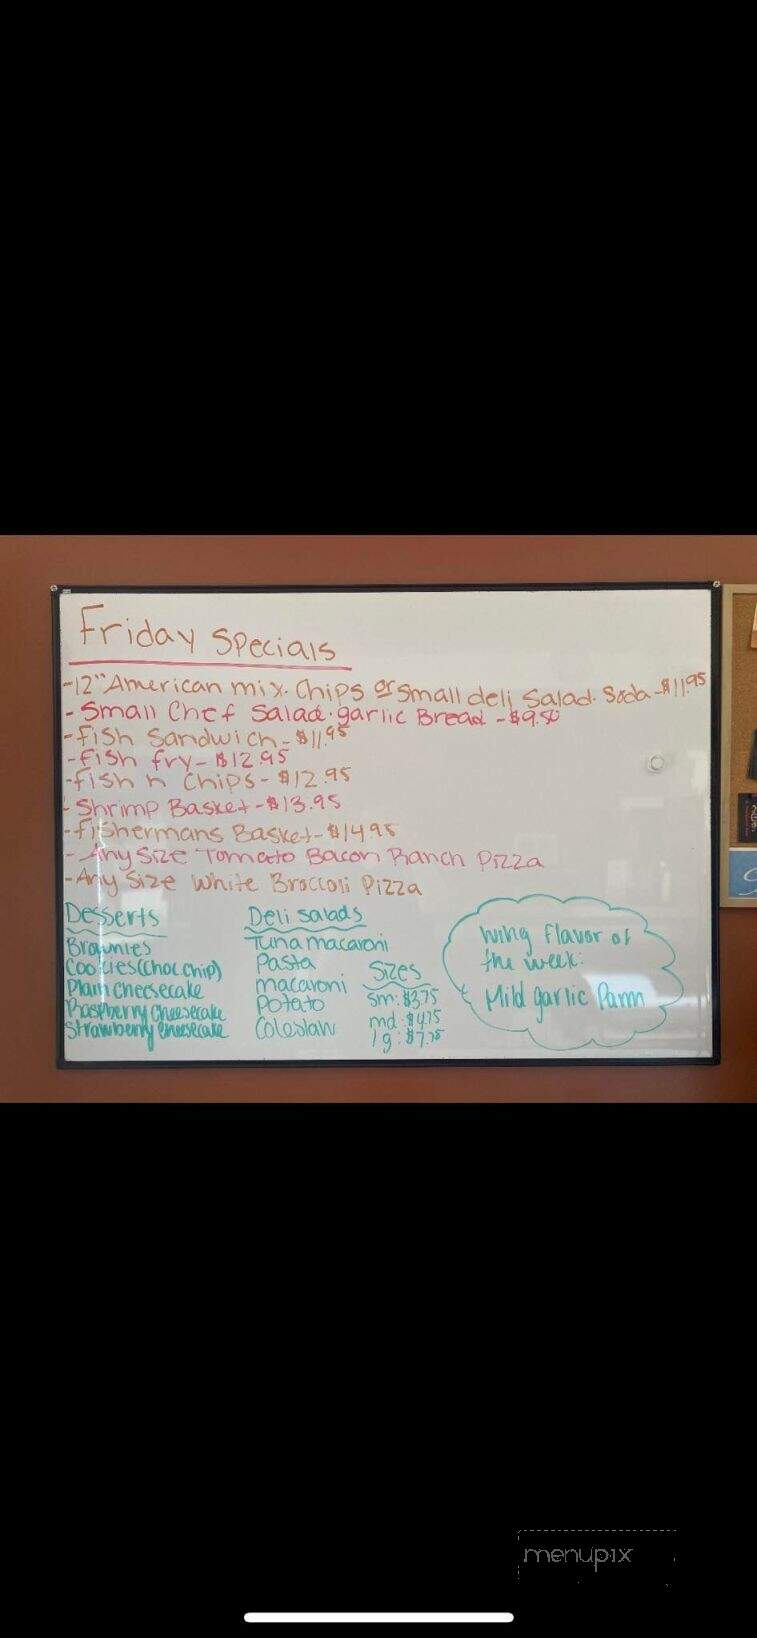 Friday Specials
-12" American mix. Chips or small deli Salad. Soda-$11.95
- Small Chef Salad. garlic Bread - $9.50
- Fish Sandwich - $11.95
- Fish fry - $12.95
- Fish n Chips - $12.95
- Shrimp Basket - $13.95
- Fishermans Basket - $14.95
- Any Size Tomato Bacon Ranch Pizza
- Any Size White Broccoli Pizza
Desserts
Brownies
Cookies (choc.chip)
Plain Cheesecake
Raspberry Cheesecake
Strawberry Cheesecake
Deli Salads
Tuna macaroni
Pasta
macaroni
Potato
Coleslaw
Sizes
sm: $3.75
md: $4.75
lg: $7.75
Wing Flavor of
the week:
Mild garlic Parm
menupix